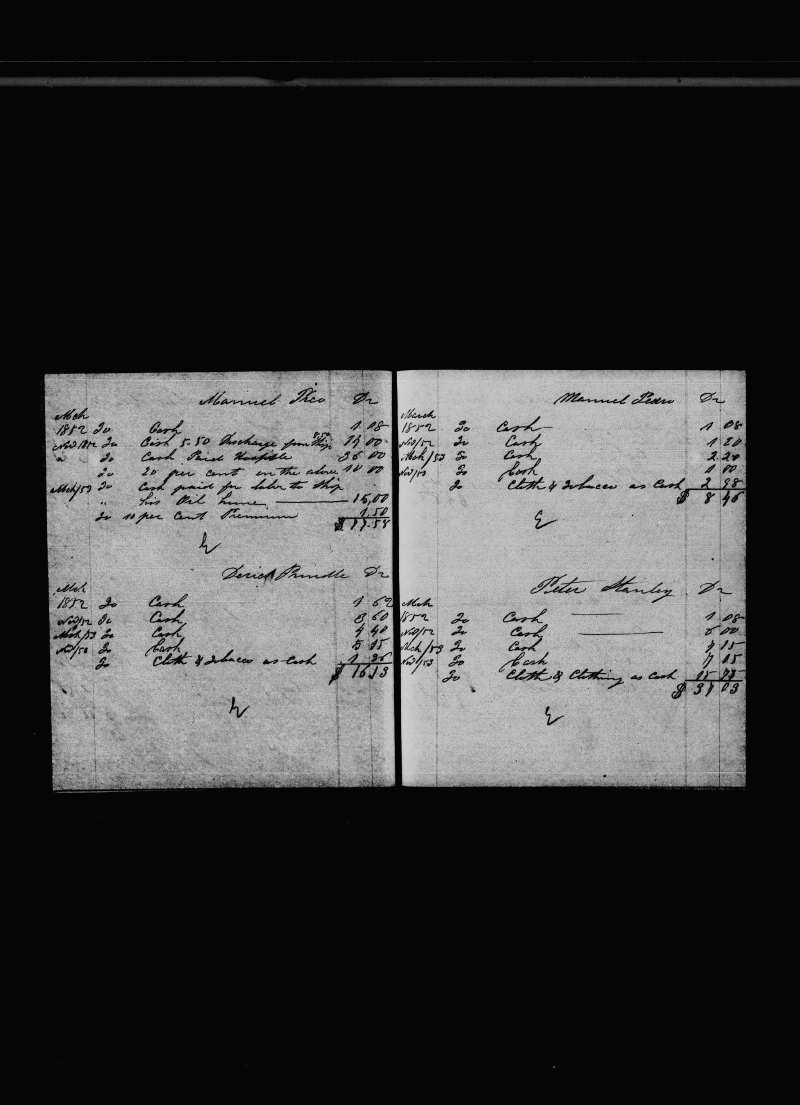 Manuel Pico Dr
Mch
1852 To Cash 1 08
Nov/52 To Cash 5.50 Discharge from Ship 14 00
" To Cash Paid Hospitle 36 00
To 20 per cent on the above 10 00
Mch/53 To Cash paid for labor to Ship
" his Oil 15,00
To 10 per cent Premium 1.50
$
Derick Prindle Dr
Mch
1852 To Cash 1 62
Nov/52 To Cash 3 60
Mch/53 To Cash 4 40
Nov/53 To Cash 5 15
To Cloth & Tobacco as Cash 1 36
$ 16 13
Manuel Pedro Dr
March
1852 To Cash 1 08
Nov/52 To Cash 1 20
Mch/53 To Cash 2.20
Nov/53 To Cash 1 00
To Cloth & Tobacco as Cash 2 98
$ 8 46
Peter Stanley Dr
Mch
1852 To Cash 1 08
Nov/52 To Cash 6 00
Mch/53 To Cash
Nov/53 To Cash 7 15
To Cloth & Clothing as Cash
$